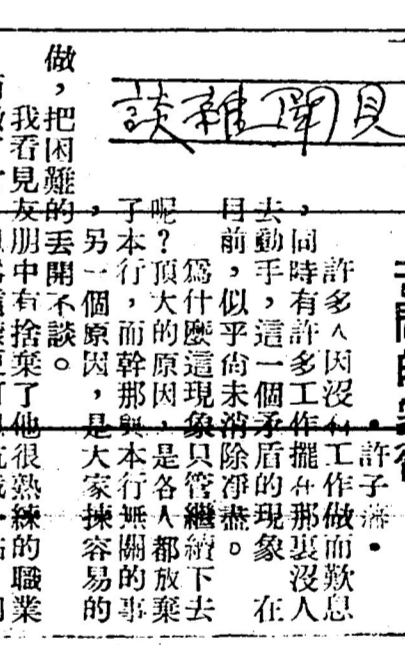 見聞雜談
問的
·許子
許多人因沒有工作做而歎息
，同時有許多工作擺在那裏沒人
去動手，這一個矛盾的現象 在
目前，似乎尚未消除淨盡。
爲什麼這現象只管繼續下去
呢？頂大的原因，是各人都放棄
了本行，而幹那與本行無關的事
，另一個原因，是大家揀容易的
做，把困難的丟開不談。
我看見友朋中有捨棄了他很熟練的職業